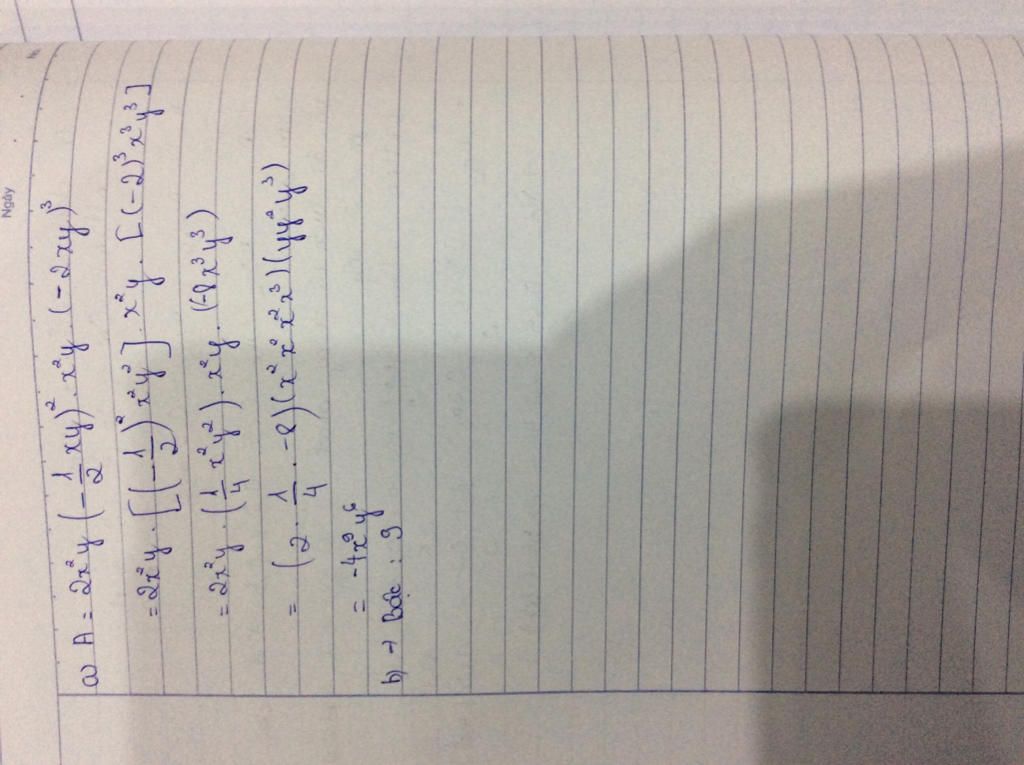 Ngày
a) A = 2x²y (-1/2 xy)² . x²y . (-2xy)³
= 2x²y . [(-1/2)² x²y²] . x²y . [(-2)³ x³y³]
= 2x²y . (1/4 x²y²) . x²y . (-8x³y³)
= (2 . 1/4 . -8)(x² x² x² x³)(yy² y³)
= -4x⁹y⁶
b) → Bậc : 9